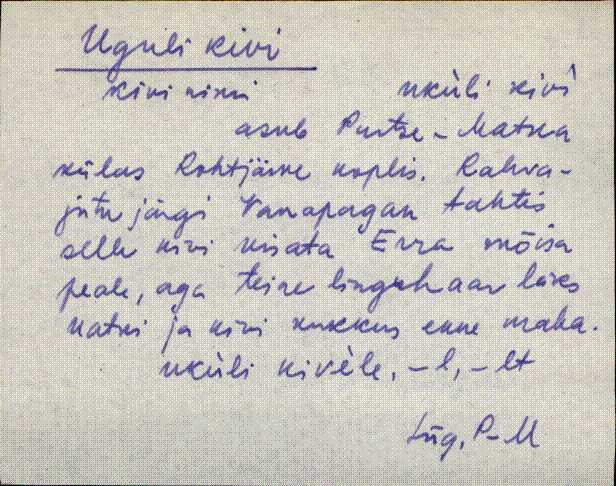 Uguli kivi
kivi nimi uküli kivì
asub Purtse-Matka
külas Rohtjärve koplis. Rahva-
jutu järgi Vanapagan tahtis
selle kivi visata Erra mõisa
peale, aga teine linguhaar läks
katki ja kivi kukkus enne maha.
uküli kivèle, -l, -lt
Lüg, P-M